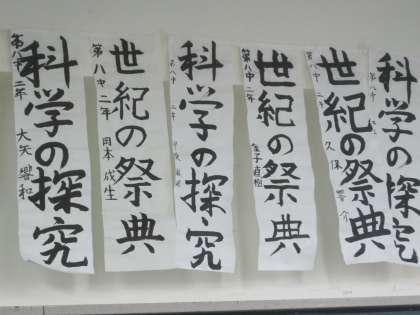 科学の探究
第八中 二年
大矢 響和
世紀の祭典
第八中 二年
岡本 成生
科学の探究
世紀の祭典
第八中 二年
金子直樹
世紀の祭典
第八中 二年
久保
科学の探究